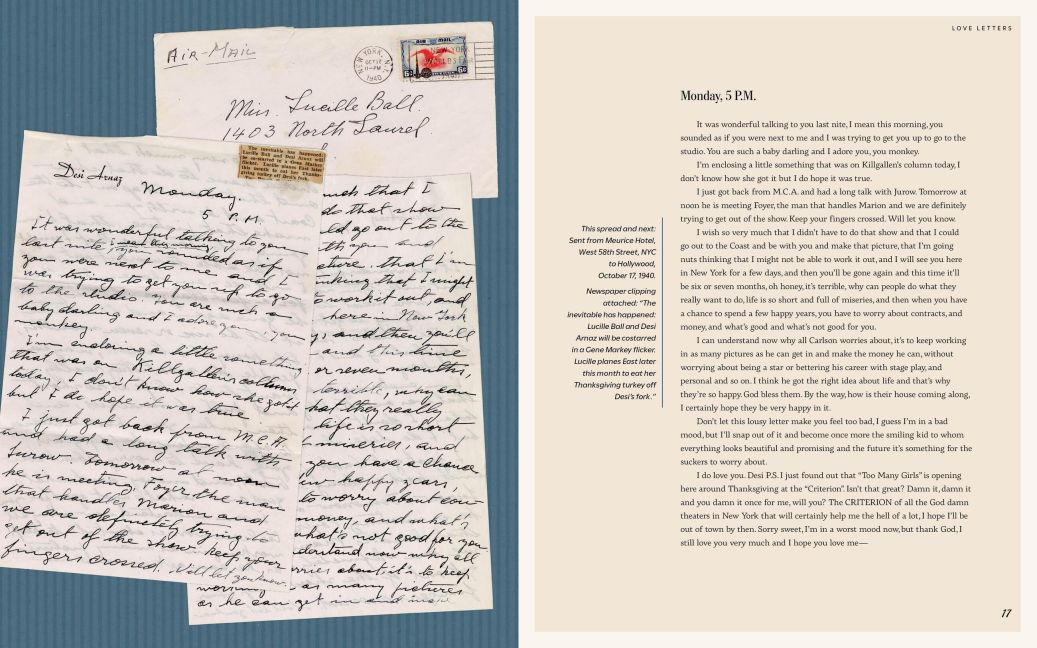 AIR-MAIL
NEW YORK, N.Y.
OCT 17
11-PM
1940
AIR MAIL
6¢
NEW YORK
WORLD'S FAIR
Miss. Lucille Ball.
1403 North Laurel.
The inevitable has happened:
Lucille Ball and Desi Arnaz will
be costarred in a Gene Markey
flicker. Lucille planes East later
this month to eat her Thanks-
giving turkey off Desi's fork.
Desi Arnaz
Monday.
5 P.M.
It was wonderful talking to you
last nite, I mean this morning,
you sounded as if
you were next to me and I
was trying to get you up to go
to the studio. You are such a
baby darling and I adore you, you
monkey.
I'm enclosing a little something
that was on Killgallen's column
today, I don't know how she got it
but I do hope it was true
I just got back from M.C.A.
and had a long talk with
Jurow. Tomorrow at noon
he is meeting, Foyer the man
that handles Marion and
we are definitely trying to
get out of the show keep your
fingers crossed. Will let you know.
much that I
do that show
ld go out to the
th you and
cture. that I'm
nking that I might
to work it out, and
here in New York
, and then you'll
and this time
or seven months,
terrible, why can
hat they really
life is so short
miseries, and
you have a chance
ew happy years,
to worry about con
money, and what's
what's not good for you
derstand now why all
rries about it's to keep
working in as many pictures
as he can get in and make
LOVE LETTERS
Monday, 5 P.M.
It was wonderful talking to you last nite, I mean this morning, you
sounded as if you were next to me and I was trying to get you up to go to the
studio. You are such a baby darling and I adore you, you monkey.
I'm enclosing a little something that was on Killgallen's column today, I
don't know how she got it but I do hope it was true.
I just got back from M.C.A. and had a long talk with Jurow. Tomorrow at
noon he is meeting Foyer, the man that handles Marion and we are definitely
trying to get out of the show. Keep your fingers crossed. Will let you know.
I wish so very much that I didn't have to do that show and that I could
go out to the Coast and be with you and make that picture, that I'm going
nuts thinking that I might not be able to work it out, and I will see you here
in New York for a few days, and then you'll be gone again and this time it'll
be six or seven months, oh honey, it's terrible, why can people do what they
really want to do, life is so short and full of miseries, and then when you have
a chance to spend a few happy years, you have to worry about contracts, and
money, and what's good and what's not good for you.
I can understand now why all Carlson worries about, it's to keep working
in as many pictures as he can get in and make the money he can, without
worrying about being a star or bettering his career with stage play, and
personal and so on. I think he got the right idea about life and that's why
they're so happy. God bless them. By the way, how is their house coming along,
I certainly hope they be very happy in it.
Don't let this lousy letter make you feel too bad, I guess I'm in a bad
mood, but I'll snap out of it and become once more the smiling kid to whom
everything looks beautiful and promising and the future it's something for the
suckers to worry about.
I do love you. Desi P.S. I just found out that "Too Many Girls" is opening
here around Thanksgiving at the "Criterion". Isn't that great? Damn it, damn it
and you damn it once for me, will you? The CRITERION of all the God damn
theaters in New York that will certainly help me the hell of a lot, I hope I'll be
out of town by then. Sorry sweet, I'm in a worst mood now, but thank God, I
still love you very much and I hope you love me—
This spread and next:
Sent from Meurice Hotel,
West 58th Street, NYC
to Hollywood,
October 17, 1940.
Newspaper clipping
attached: "The
inevitable has happened:
Lucille Ball and Desi
Arnaz will be costarred
in a Gene Markey flicker.
Lucille planes East later
this month to eat her
Thanksgiving turkey off
Desi's fork."
17